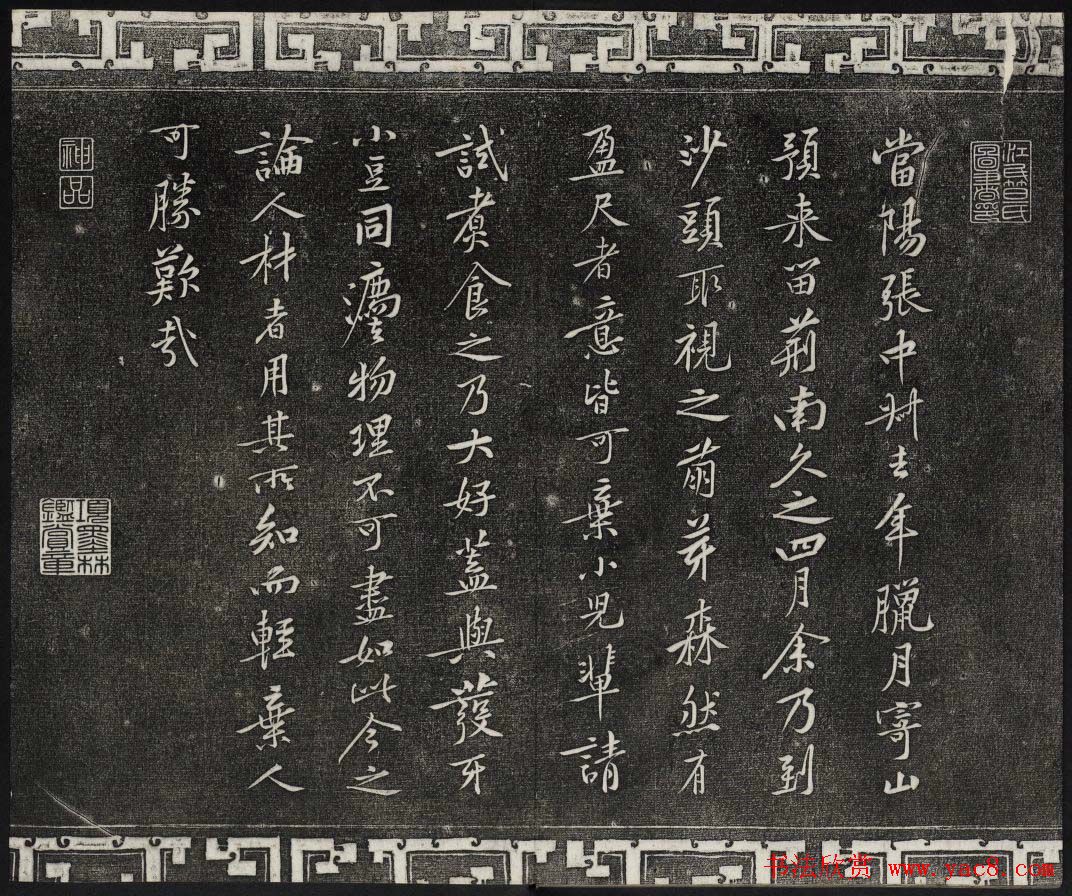 當陽張中叔去年臘月寄山
預来留荊南久之四月余乃到
沙頭取視之萌芽森然有
盈尺者意皆可棄小兒輩請
試煮食之乃大好蓋與發牙
小豆同灋物理不可盡如此今之
論人材者用其所知而輕棄人
可勝歎哉
神品
項墨林鑑賞章
书法欣赏 www.yac8.com